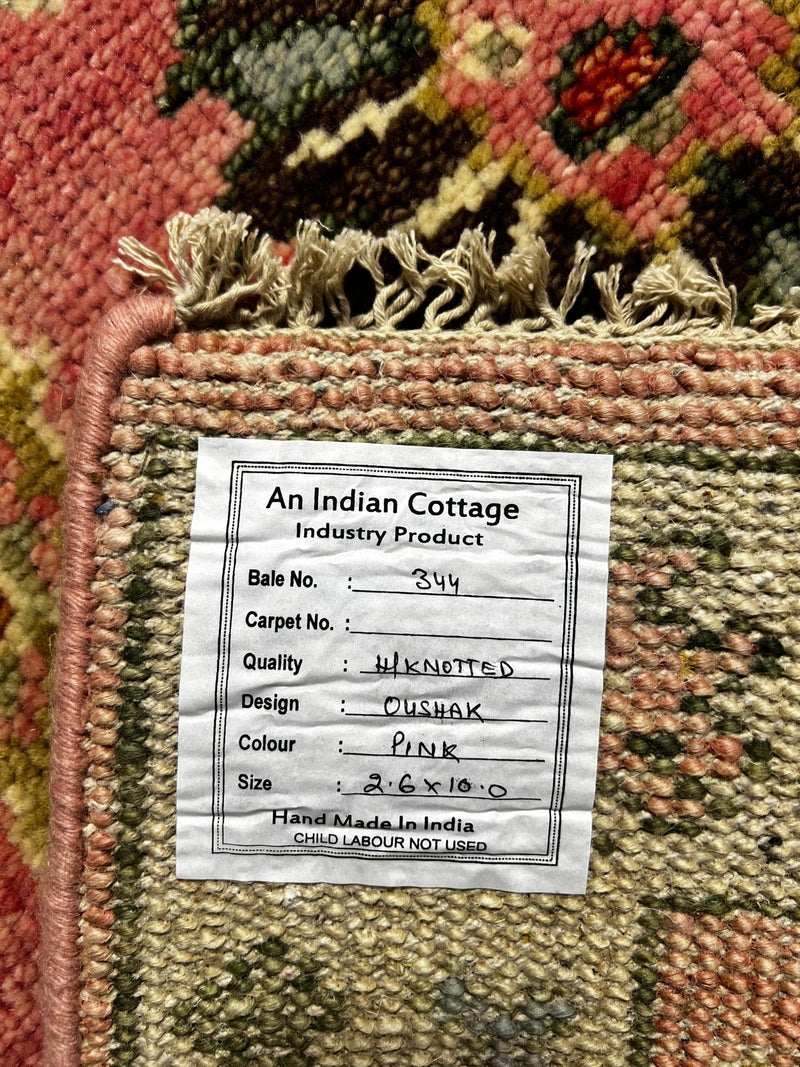 An Indian Cottage
Industry Product
Bale No. : 344
Carpet No. :
Quality : H/KNOTTED
Design : OUSHAK
Colour : PINK
Size : 2.6 x 10.0
Hand Made In India
CHILD LABOUR NOT USED